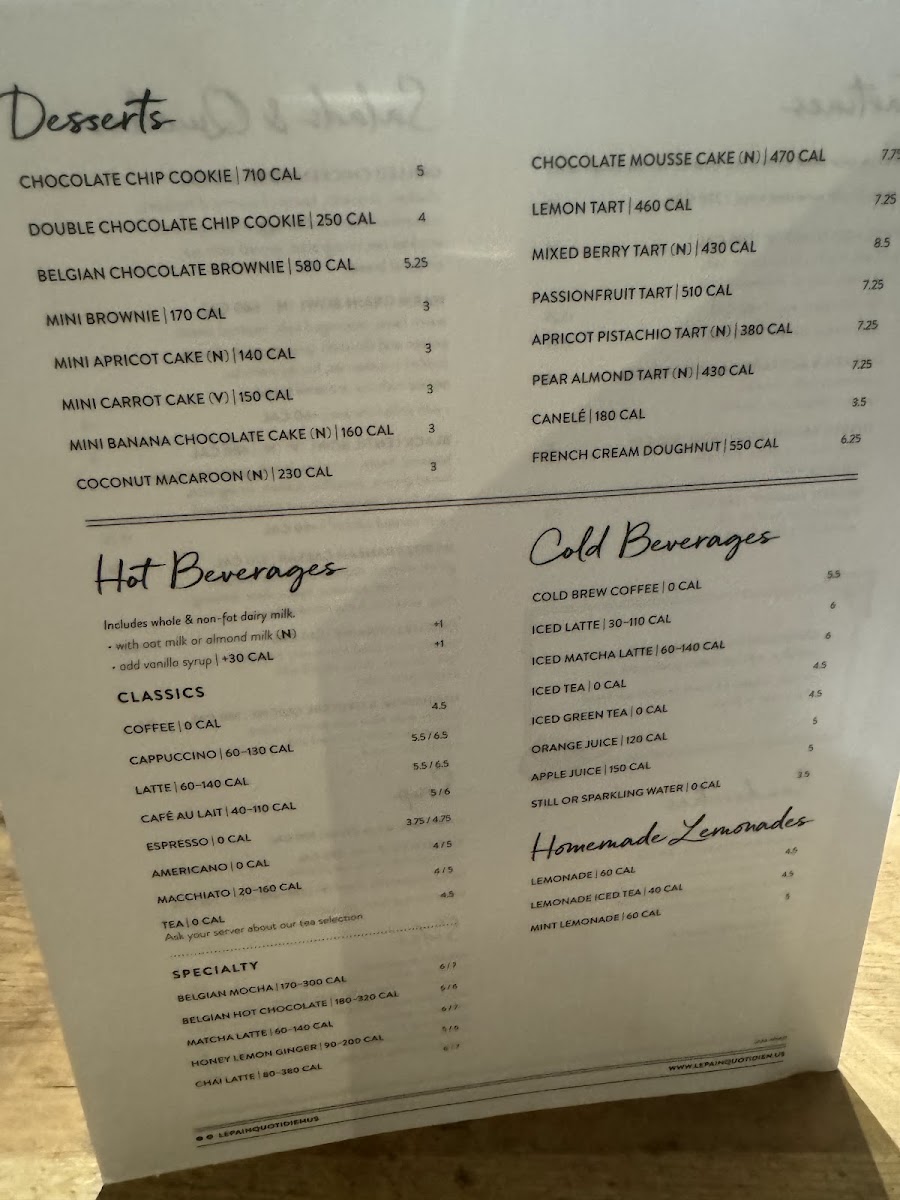 Desserts
CHOCOLATE CHIP COOKIE | 710 CAL 5
DOUBLE CHOCOLATE CHIP COOKIE | 250 CAL 4
BELGIAN CHOCOLATE BROWNIE | 580 CAL 5.25
MINI BROWNIE | 170 CAL 3
MINI APRICOT CAKE (N) | 140 CAL 3
MINI CARROT CAKE (V) | 150 CAL 3
MINI BANANA CHOCOLATE CAKE (N) | 160 CAL 3
COCONUT MACAROON (N) | 230 CAL 3
CHOCOLATE MOUSSE CAKE (N) | 470 CAL 7.75
LEMON TART | 460 CAL 7.25
MIXED BERRY TART (N) | 430 CAL 8.5
PASSIONFRUIT TART | 510 CAL 7.25
APRICOT PISTACHIO TART (N) | 380 CAL 7.25
PEAR ALMOND TART (N) | 430 CAL 7.25
CANELÉ | 180 CAL 3.5
FRENCH CREAM DOUGHNUT | 550 CAL 6.25
Hot Beverages
Includes whole & non-fat dairy milk.
• with oat milk or almond milk (N) +1
• add vanilla syrup | +30 CAL +1
CLASSICS
COFFEE | 0 CAL 4.5
CAPPUCCINO | 60-130 CAL 5.5 / 6.5
LATTE | 60-140 CAL 5.5 / 6.5
CAFÉ AU LAIT | 40-110 CAL 5 / 6
ESPRESSO | 0 CAL 3.75 / 4.75
AMERICANO | 0 CAL 4 / 5
MACCHIATO | 20-160 CAL 4 / 5
TEA | 0 CAL 4.5
Ask your server about our tea selection
SPECIALTY
BELGIAN MOCHA | 170-300 CAL 6 / 7
BELGIAN HOT CHOCOLATE | 180-320 CAL
MATCHA LATTE | 60-140 CAL 6 / 7
HONEY LEMON GINGER | 90-200 CAL
CHAI LATTE | 80-380 CAL 6 / 7
Cold Beverages
COLD BREW COFFEE | 0 CAL 5.5
ICED LATTE | 30-110 CAL 6
ICED MATCHA LATTE | 60-140 CAL 6
ICED TEA | 0 CAL 4.5
ICED GREEN TEA | 0 CAL 4.5
ORANGE JUICE | 120 CAL 5
APPLE JUICE | 150 CAL 5
STILL OR SPARKLING WATER | 0 CAL 3.5
Homemade Lemonades
LEMONADE | 60 CAL 4.5
LEMONADE ICED TEA | 40 CAL 4.5
MINT LEMONADE | 60 CAL 5
WWW.LEPAINQUOTIDIEN.US
LEPAINQUOTIDIENUS